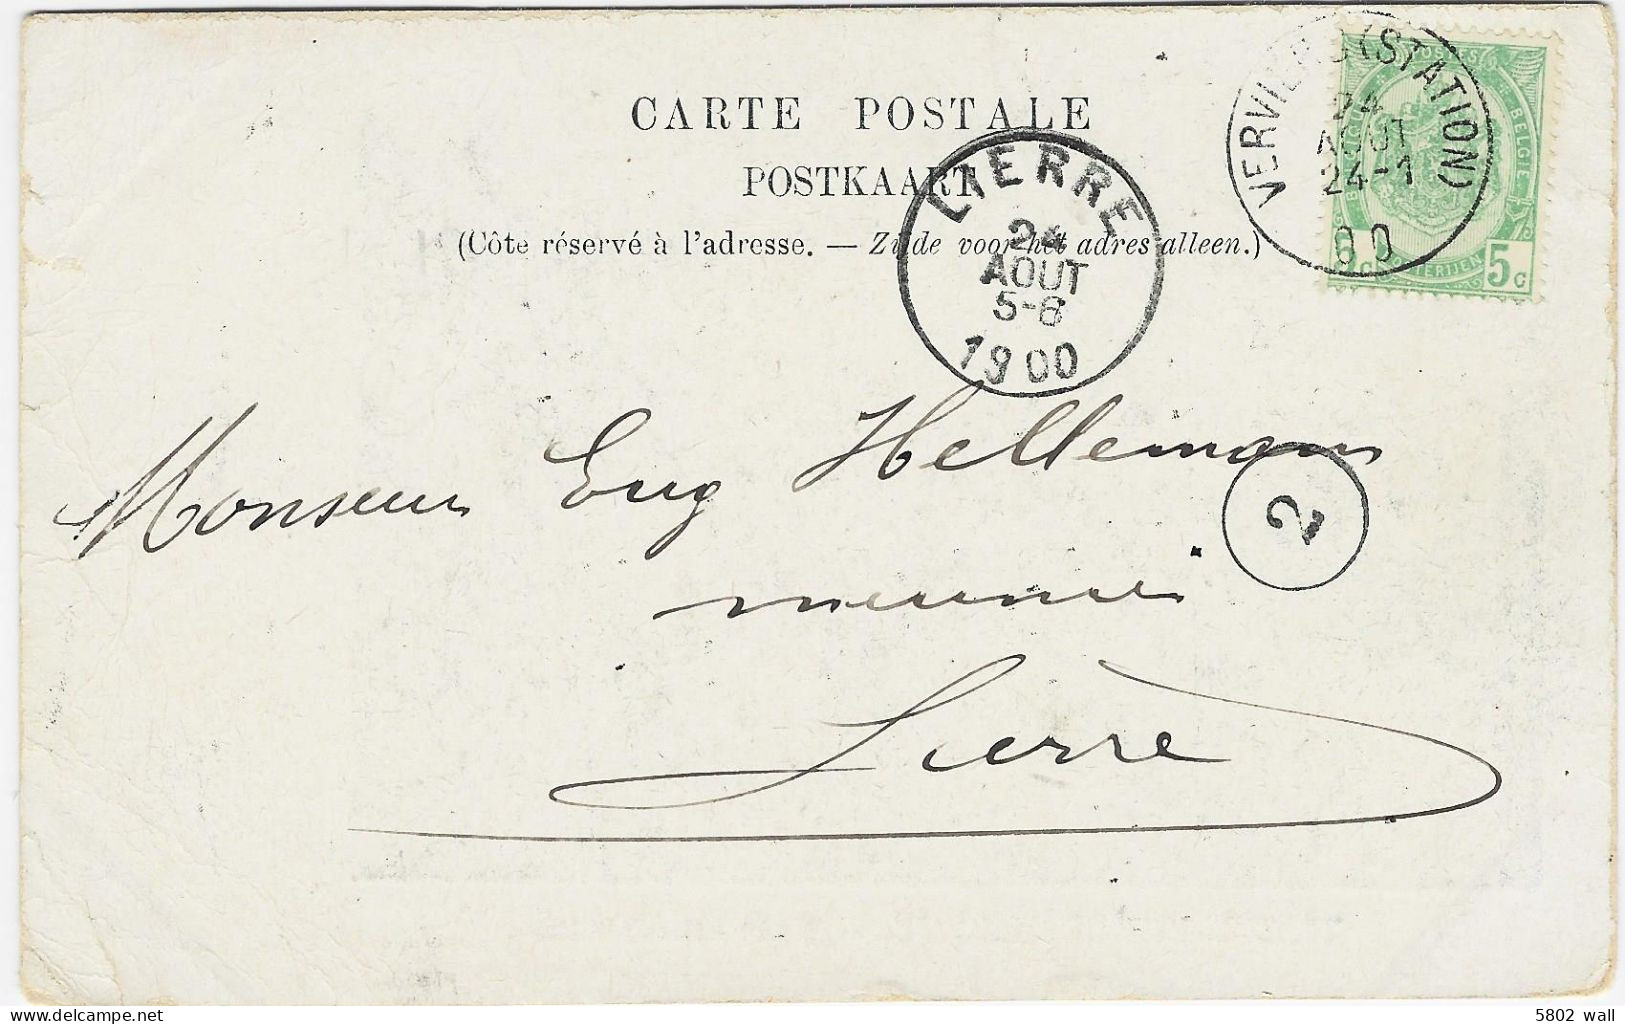 CARTE POSTALE
POSTKAART
(Côte réservé à l'adresse. — Zijde voor het adres alleen.)
VERVIERS (STATION)
24
AOUT
24-1
00
POSTES BELGIQUE
POSTERIJEN BELGIE
5c 5c
LIERRE
24
AOUT
5-6
1900
Monsieur Eug Hellemans
2
meunier
Lierre
5802 wall